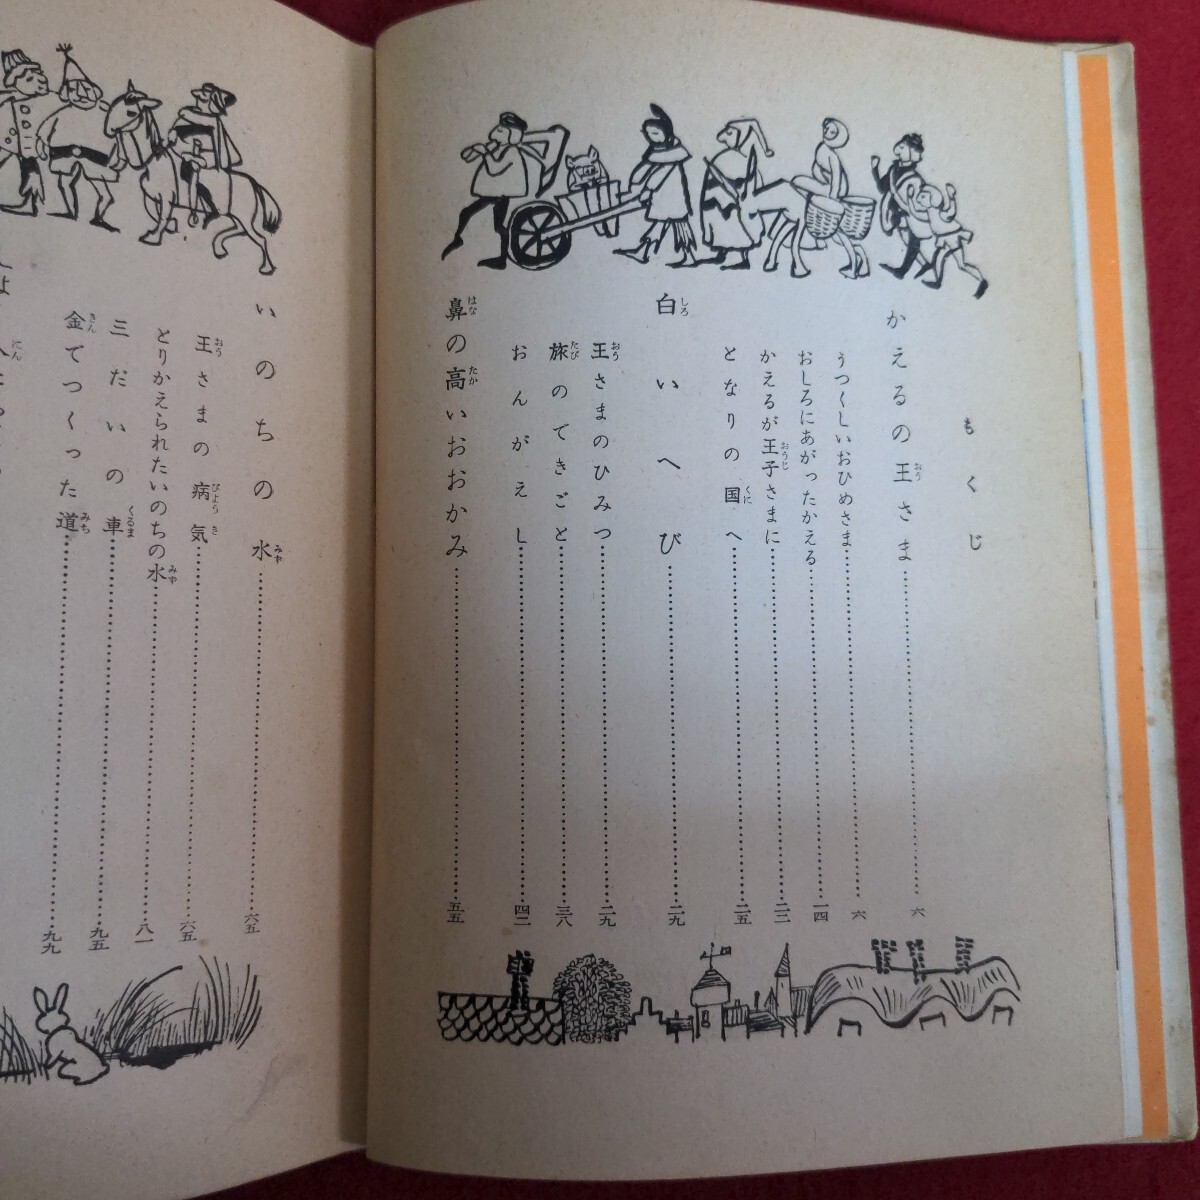 もくじ
かえるの王さま……六
うつくしいおひめさま……六
おしろにあがったかえる……一四
かえるが王子さまに……二二
となりの国へ……二五
白いへび……二九
王さまのひみつ……二九
旅のできごと……三八
おんがえし……四二
鼻の高いおおかみ……五五
いのちの水……六五
王さまの病気……六五
とりかえられたいのちの水……八一
三だいの車……九五
金でつくった道……九九